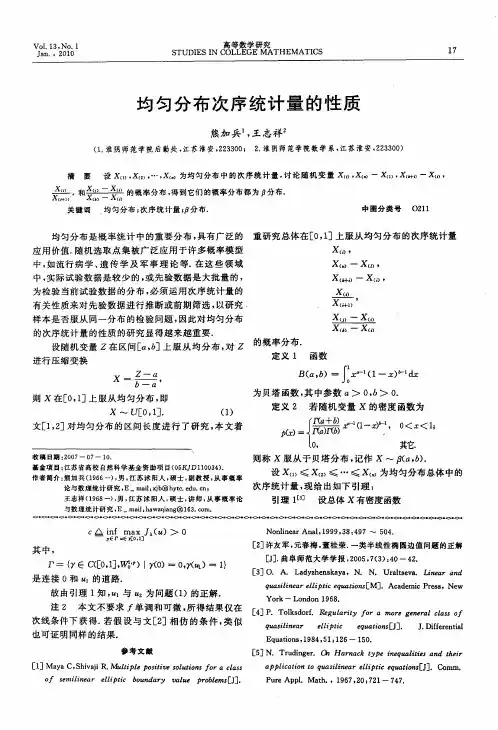 Vol. 13, No. 1
Jan. , 2010
高等数学研究
STUDIES IN COLLEGE MATHEMATICS
17
均匀分布次序统计量的性质
熊加兵¹,王志祥²
(1. 淮阴师范学院后勤处,江苏淮安,223300; 2. 淮阴师范学院数学系,江苏淮安,223300)
摘 要 设 X₍₁₎,X₍₂₎,⋯,X₍ₙ₎ 为均匀分布中的次序统计量,讨论随机变量 X₍ᵢ₎,X₍ₙ₎ − X₍₁₎,X₍ᵢ₊₁₎ − X₍ᵢ₎,
X₍ᵢ₎/X₍ᵢ₊₁₎, 和 的概率分布,得到它们的概率分布都为 β 分布.
关键词 均匀分布;次序统计量;β 分布.
中图分类号 O211
均匀分布是概率统计中的重要分布,具有广泛的
应用价值. 随机选取点集被广泛应用于许多概率模型
中,如流行病学、遗传学及军事理论等. 在这些领域
中,实际试验数据是较少的,或先验数据是大批量的,
为检验当前试验数据的分布,必须运用次序统计量的
有关性质来对先验数据进行推断或前期筛选,以研究
样本是否服从同一分布的检验问题,因此对均匀分布
的次序统计量的性质的研究显得越来越重要.
设随机变量 Z 在区间[a,b]上服从均匀分布,对 Z
进行压缩变换
X = (Z − a)/(b − a),
则 X 在[0,1]上服从均匀分布,即
X ~ U[0,1]. (1)
文[1,2]对均匀分布的区间长度进行了研究,本文着
收稿日期:2007−07−10.
基金项目:江苏省高校自然科学基金资助项目(05KJD110034).
作者简介:熊加兵(1966−),男,江苏沭阳人,硕士,副教授,从事概率
论与数理统计研究,E_mail:xjb@hytc.edu.cn;
王志祥(1968−),男,江苏沭阳人,硕士,讲师,从事概率论
与数理统计研究,E_mail:hawzqiang@163.com.
重研究总体在[0,1]上服从均匀分布的次序统计量
X₍ᵢ₎,
X₍ₙ₎ − X₍₁₎,
X₍ᵢ₊₁₎ − X₍ᵢ₎,
X₍ᵢ₎/X₍ᵢ₊₁₎,
的概率分布.
定义 1 函数
B(a,b) = ∫₀¹ xᵃ⁻¹(1 − x)ᵇ⁻¹dx
为贝塔函数,其中参数 a > 0,b > 0.
定义 2 若随机变量 X 的密度函数为
p(x) = { Γ(a+b)/(Γ(a)Γ(b)) xᵃ⁻¹(1−x)ᵇ⁻¹, 0<x<1;
0, 其它.
则称 X 服从于贝塔分布,记作 X ~ β(a,b).
设 X₍₁₎ ⩽ X₍₂₎ ⩽ ⋯ ⩽ X₍ₙ₎ 为均匀分布总体中的
次序统计量,现给出如下引理:
引理 1[3] 设总体 X 有密度函数
c ≜ inf max (u) > 0
其中,
Γ = {γ ∈ C([0,1], ) | γ(0) = 0,γ(u₁) = 1}
是连接 0 和 u₁ 的道路.
故由引理 1 知,u₁ 与 u₂ 为问题(1)的正解.
注 2 本文不要求 f 单调和可微,所得结果仅在
次线条件下获得. 若假设与文[2]相仿的条件,类似
也可证明同样的结果.
参考文献
[1] Maya C,Shivaji R. Multiple positive solutions for a class
of semilinear elliptic boundary value problems[J].
Nonlinear Anal,1999,38:497 ~ 504.
[2] 许友军,元春梅,董桂荣. 一类半线性椭圆边值问题的正解
[J]. 曲阜师范大学学报,2005,7(3):40−42.
[3] O. A. Ladyzhenskaya, N. N. Uraltseva. Linear and
quasilinear elliptic equations[M]. Academic Press, New
York − London 1968.
[4] P. Tolksdorf. Regularity for a more general class of
quasilinear elliptic equations[J]. J. Differential
Equations,1984,51:126−150.
[5] N. Trudinger. On Harnack type inequalities and their
application to quasilinear elliptic equations[J]. Comm.
Pure Appl. Math. , 1967,20:721−747.